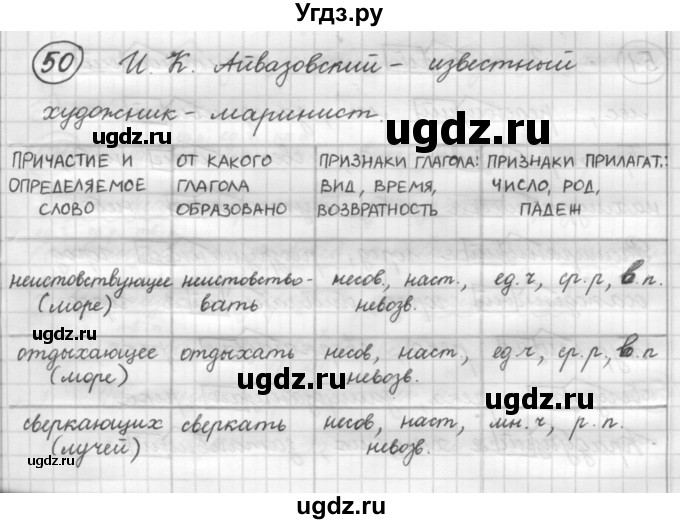 Угдз.ру
50 И. К. Айвазовский – известный
художник – маринист.
ugdz.ru ugdz.ru ugdz.ru
ПРИЧАСТИЕ И ОТ КАКОГО ПРИЗНАКИ ГЛАГОЛА: ПРИЗНАКИ ПРИЛАГАТ.:
ОПРЕДЕЛЯЕМОЕ ГЛАГОЛА ВИД, ВРЕМЯ, ЧИСЛО, РОД,
СЛОВО ОБРАЗОВАНО ВОЗВРАТНОСТЬ ПАДЕЖ
неистовствующее неистовство- несов, наст., ед.ч, ср.р, в.п.
(море) вать невозв.
ugdz.ru ugdz.ru
отдыхающее отдыхать несов, наст., ед.ч, ср.р, в.п
(море) невозв.
ugdz.ru ugdz.ru
сверкающих сверкать несов, наст, мн.ч, р.п.
(лучей) невозв.
ugdz.ru ugdz.ru ugdz.ru
ugdz.ru